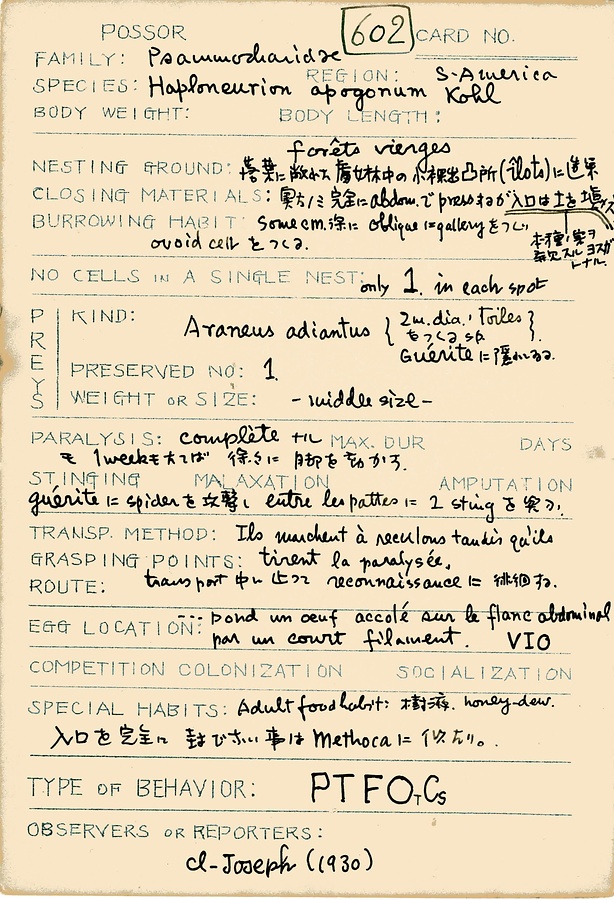 POSSOR 602 CARD NO.
FAMILY: Psammocharidae
REGION: S-America
SPECIES: Haploneurion apogonum Kohl
BODY WEIGHT: BODY LENGTH:
forêts vierges
NESTING GROUND: 中の小裸出凸所(îlots)に造巣
CLOSING MATERIALS: 完全にabdom.でpressするが入口は土を
BURROWING HABIT: some cm.深に obliqueにgalleryをつくり
ovoid cell をつくる.
本種ノ実ヲ
NO CELLS IN A SINGLE NEST: only 1. in each spot
PREYS
KIND: Araneus adiantus { 2m.dia.'toiles をつくる sp. Guériteに隠れゐる. }
PRESERVED NO: 1.
WEIGHT OR SIZE: -middle size-
PARALYSIS: complète ナル MAX. DUR DAYS
モ 1weekもたてば 徐々に 脚を動かす.
STINGING MALAXATION AMPUTATION
guérite に spiderを攻撃し entre les pattes に 2 sting を
TRANSP. METHOD: Ils marchent à reculons tandis qu'ils
GRASPING POINTS: tirent la paralysée.
ROUTE: transport中に reconnaissance に 徘徊する.
EGG LOCATION: --- pond un œuf accolé sur le flanc abdominal
par un court filament. VIO
COMPETITION COLONIZATION SOCIALIZATION
SPECIAL HABITS: Adult food habit: 樹液. honey-dew.
入口を完全に 封じない事は Methocaに 似たり。
TYPE OF BEHAVIOR: PTFOTCS
OBSERVERS OR REPORTERS:
Cl-Joseph (1930)